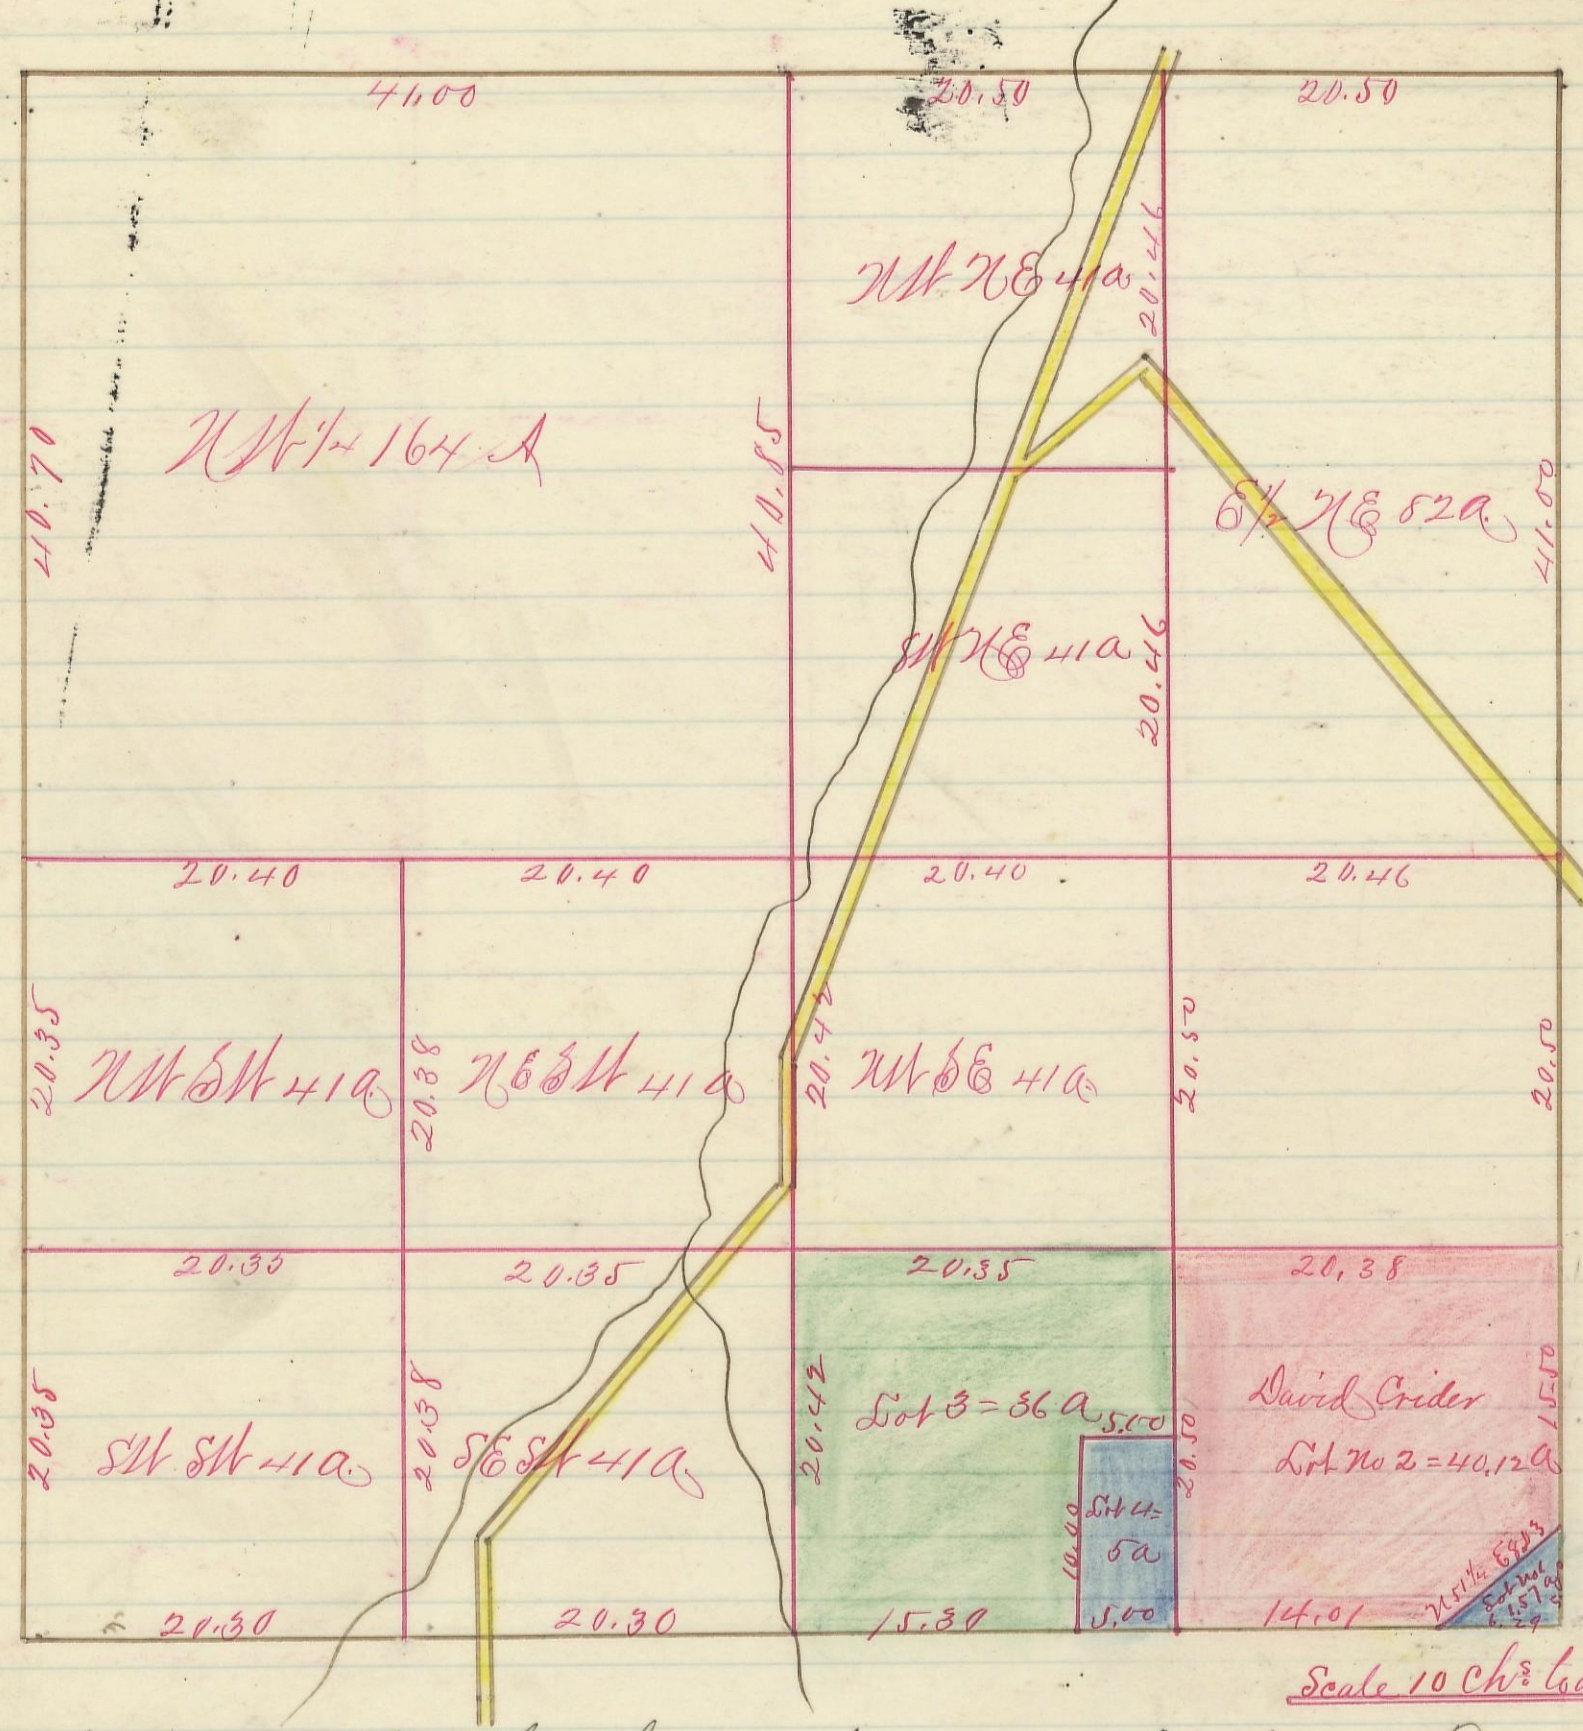 41.00
20.50
20.50
NW NE 41a
20.46
NW 1/4 164 A
40.70
40.85
E 1/2 NE 82a
41.00
SW NE 41a
20.46
20.40
20.40
20.40
20.46
20.35
NW SW 41a
20.38
NE SW 41a
20.42
NW SE 41a
20.50
20.50
20.35
20.35
20.35
20.38
20.35
SW SW 41a
20.38
SE SW 41a
20.42
Lot 3 = 36 a
5.00
10.00
Lot 4 =
5a
20.50
David Crider
Lot No 2 = 40.12 a
15.50
N 51 1/4 E 8.03
Lot No 1
1.57 a
6.29
20.30
20.30
15.30
5.00
14.01
Scale 10 Chs to